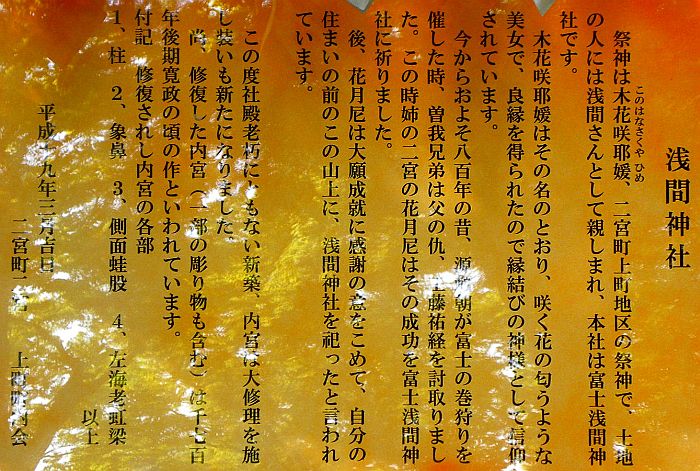 浅間神社
祭神は木花咲耶媛、二宮町上町地区の祭神で、土地
このはなさくや ひめ
の人には浅間さんとして親しまれ、本社は富士浅間神
社です。
木花咲耶媛はその名のとおり、咲く花の匂うような
美女で、良縁を得られたので縁結びの神様として信仰
されています。
今からおよそ八百年の昔、源頼朝が富士の巻狩りを
催した時、曽我兄弟は父の仇、工藤祐経を討取りまし
た。この時姉の二宮の花月尼はその成功を富士浅間神
社に祈りました。
後、花月尼は大願成就に感謝の意をこめて、自分の
住まいの前のこの山上に、浅間神社を祀ったと言われ
ています。
この度社殿老朽にともない新築、内宮は大修理を施
し装いも新たになりました。
尚、修復した内宮（一部の彫り物も含む）は千七百
年後期寛政の頃の作といわれています。
付記 修復されし内宮の各部
1、柱 2、象鼻 3、側面蛙股 4、左海老虹梁
以上
平成十九年三月吉日
二宮町 上町町内会